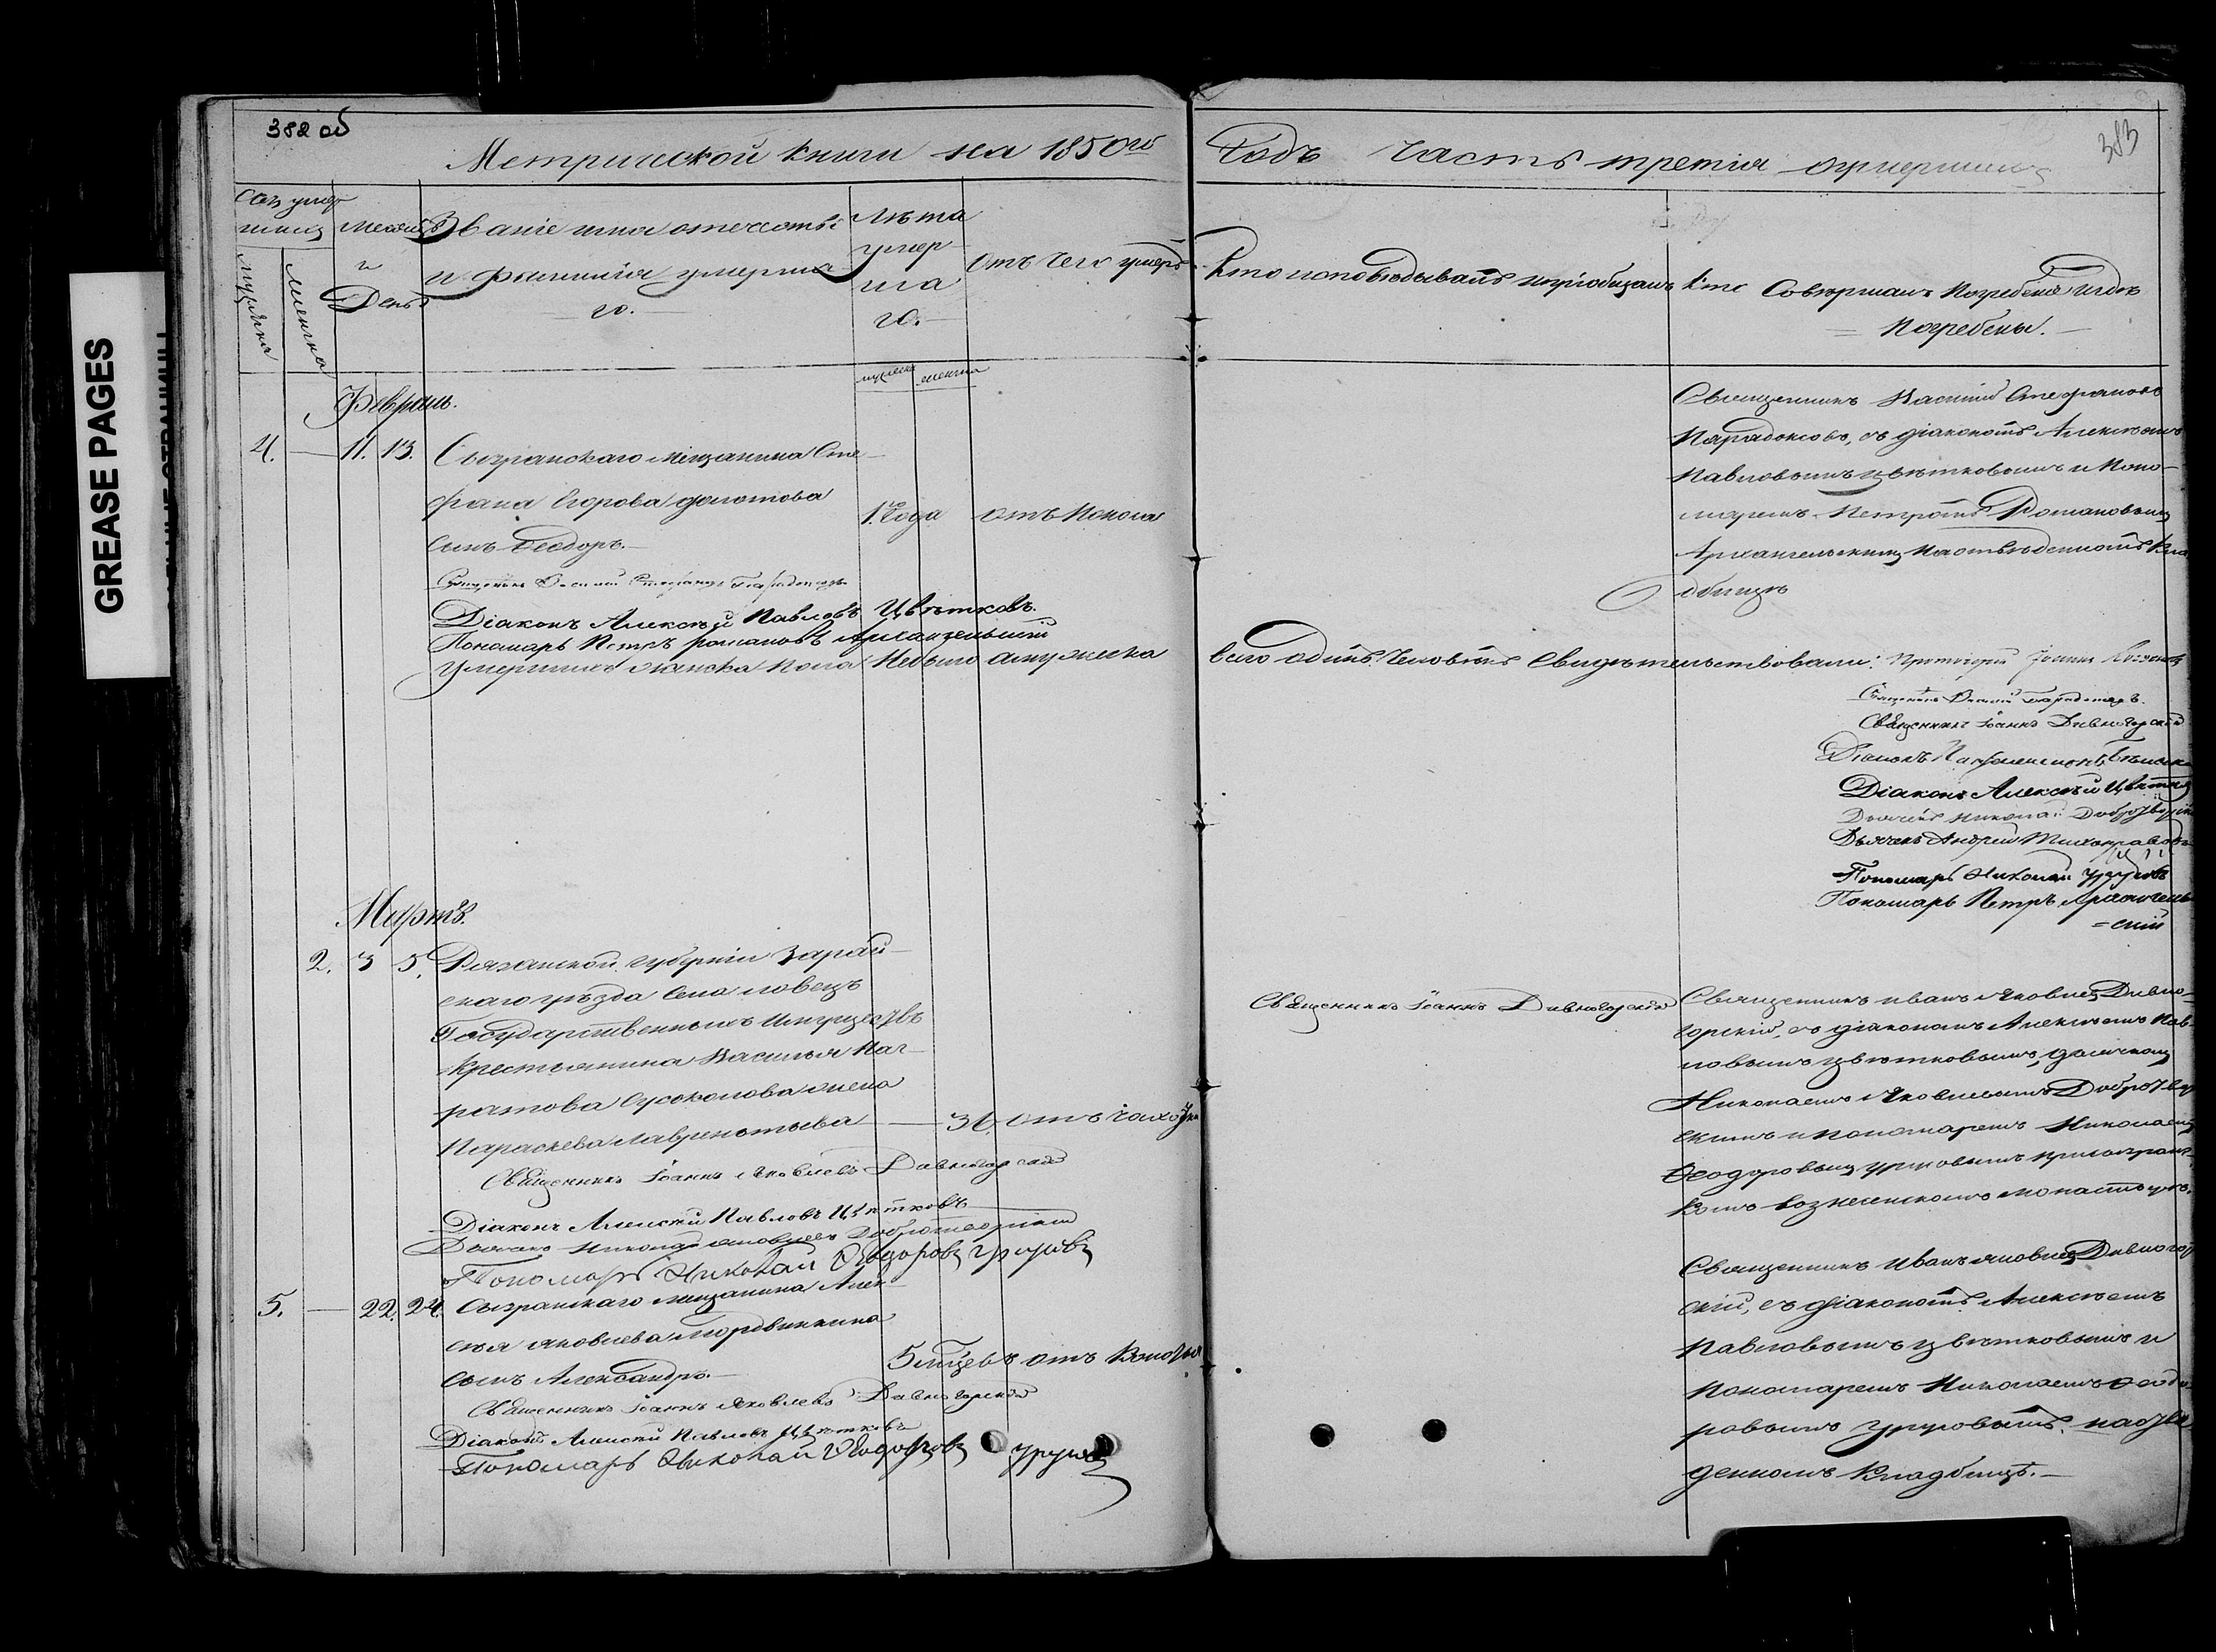 GREASE PAGES
382 об
383
Метрической книги на 1850й Годъ Часть третія оумершихъ
Мужеска
Женска
Месяцъ
и
День
Званіе имя отечество
и фамилія умерша
го.
Лѣта
умер
ша
го.
Отъ чего умеръ
Кто исповѣдывалъ и пріобщалъ
Кто Совершалъ Погребеніе и где
Погребены.
мужеска женска
Февраль.
4. — 11. 13. Сызранскаго мещанина Сте
фана Егорова
сынъ Феодоръ.
1. года
отъ поноса
Священникъ Василий Стефановъ
Парадоксовъ, съ діакономъ Алексѣемъ
Павловымъ Цвѣтковымъ и Поно-
маремъ Петромъ Романовымъ
Архангельскимъ на отведенномъ Кла
дбищѣ
Священникъ Василий Стефановъ Парадоксовъ
Діаконъ Алексѣй Павловъ Цвѣтковъ.
Пономарь Петръ Романовъ Архангельскій
Умершихъ женска пола Небыло а мужеска
всего одинъ человѣкъ Свидѣтельствовали: Протоіерей Іоаннъ
Священникъ Василий Парадоксовъ.
Священникъ Іоаннъ Дивногорскій
Діаконъ
Діаконъ Алексѣй Цвѣтковъ
Дьячекъ Николай
Дьячекъ Андрей Тихонравовъ
Пономарь Николай Урусовъ
Пономарь Петръ Архангель
=скій
Мартъ.
2. 3 5. Рязанской губерніи Зарай-
скаго уѣзда села Ловецъ
Государственныхъ Имуществъ
Крестьянина Василья Пан-
ратова жена
Параскева Лаврентьева
36. отъ чахотки
Священникъ Іоаннъ Дивногорскій
Священникъ Иванъ Яковлевъ Дивно-
горскій, съ діакономъ Алексѣемъ Пав-
ловымъ Цвѣтковымъ, дьячкомъ
Николаемъ Яковлевымъ Добротвор
скимъ и пономаремъ Николаемъ
Феодоровымъ Урусовымъ при сызранс-
комъ вознесенскомъ монастырѣ.
Священникъ Іоаннъ Яковлевъ Дивногорскій
Діаконъ Алексѣй Павловъ Цвѣтковъ
Дьячекъ Николай Яковлевъ Добротворскій
Пономарь Николай Феодоровъ Урусовъ
5. — 22. 24. Сызранскаго мещанина Алек-
сѣя Яковлева Мордвинкина
сынъ Александръ.
5 мѣсецовъ
отъ
Священникъ Иванъ Яковлевъ Дивногор
скій, съ діакономъ Алексѣемъ
Павловымъ Цвѣтковымъ и
Пономаремъ Николаемъ Феодо-
ровымъ Урусовымъ. на отве
денномъ Кладбищѣ.
Священникъ Іоаннъ Яковлевъ Дивногорскій
Діаконъ Алексѣй Павловъ Цвѣтковъ
Пономарь Николай Феодоровъ Урусовъ